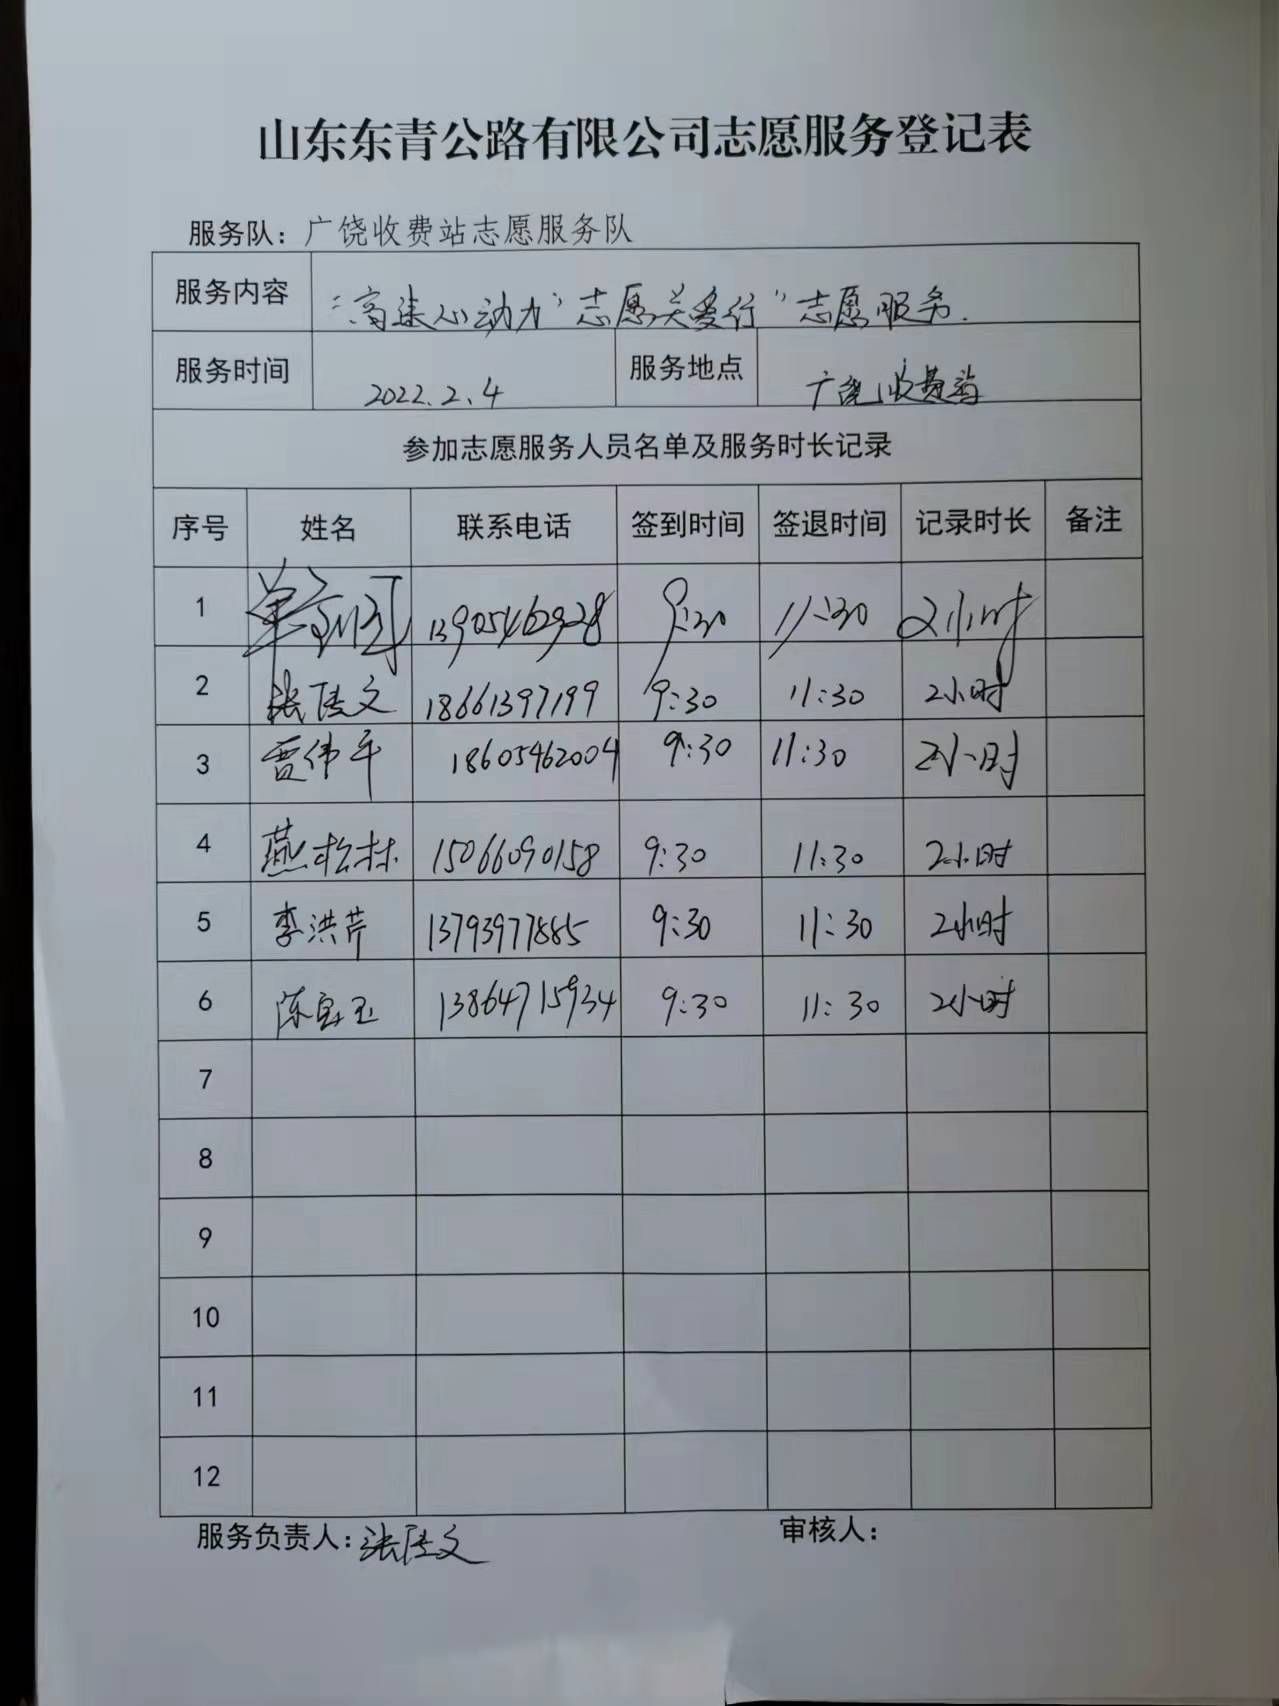 山东东青公路有限公司志愿服务登记表
服务队：广饶收费站志愿服务队
服务内容 “高速心动力”志愿关爱行”志愿服务.
服务时间 2022.2.4 服务地点 广饶收费站
参加志愿服务人员名单及服务时长记录
序号 姓名 联系电话 签到时间 签退时间 记录时长 备注
1 13905462928 9:30 11:30 2小时
2 张 文 18661397199 9:30 11:30 2小时
3 贾伟平 18605462004 9:30 11:30 2小时
4 燕松林 15066090158 9:30 11:30 2小时
5 李洪芹 13793977885 9:30 11:30 2小时
6 陈宝玉 13864715934 9:30 11:30 2小时
7
8
9
10
11
12
服务负责人：张 文 审核人：